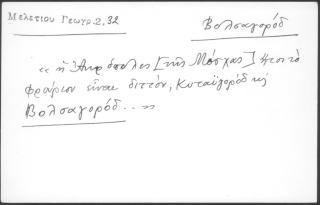 Μελετίου Γεωγρ. 2, 32
Βολσαγορόδ
« ἡ Ἀκρόπολις [τῆς Μόσχας] ἤτοι τὸ
φρούριον εἶναι διττόν, Κυταϊγορόδ κ
Βολσαγορόδ... »